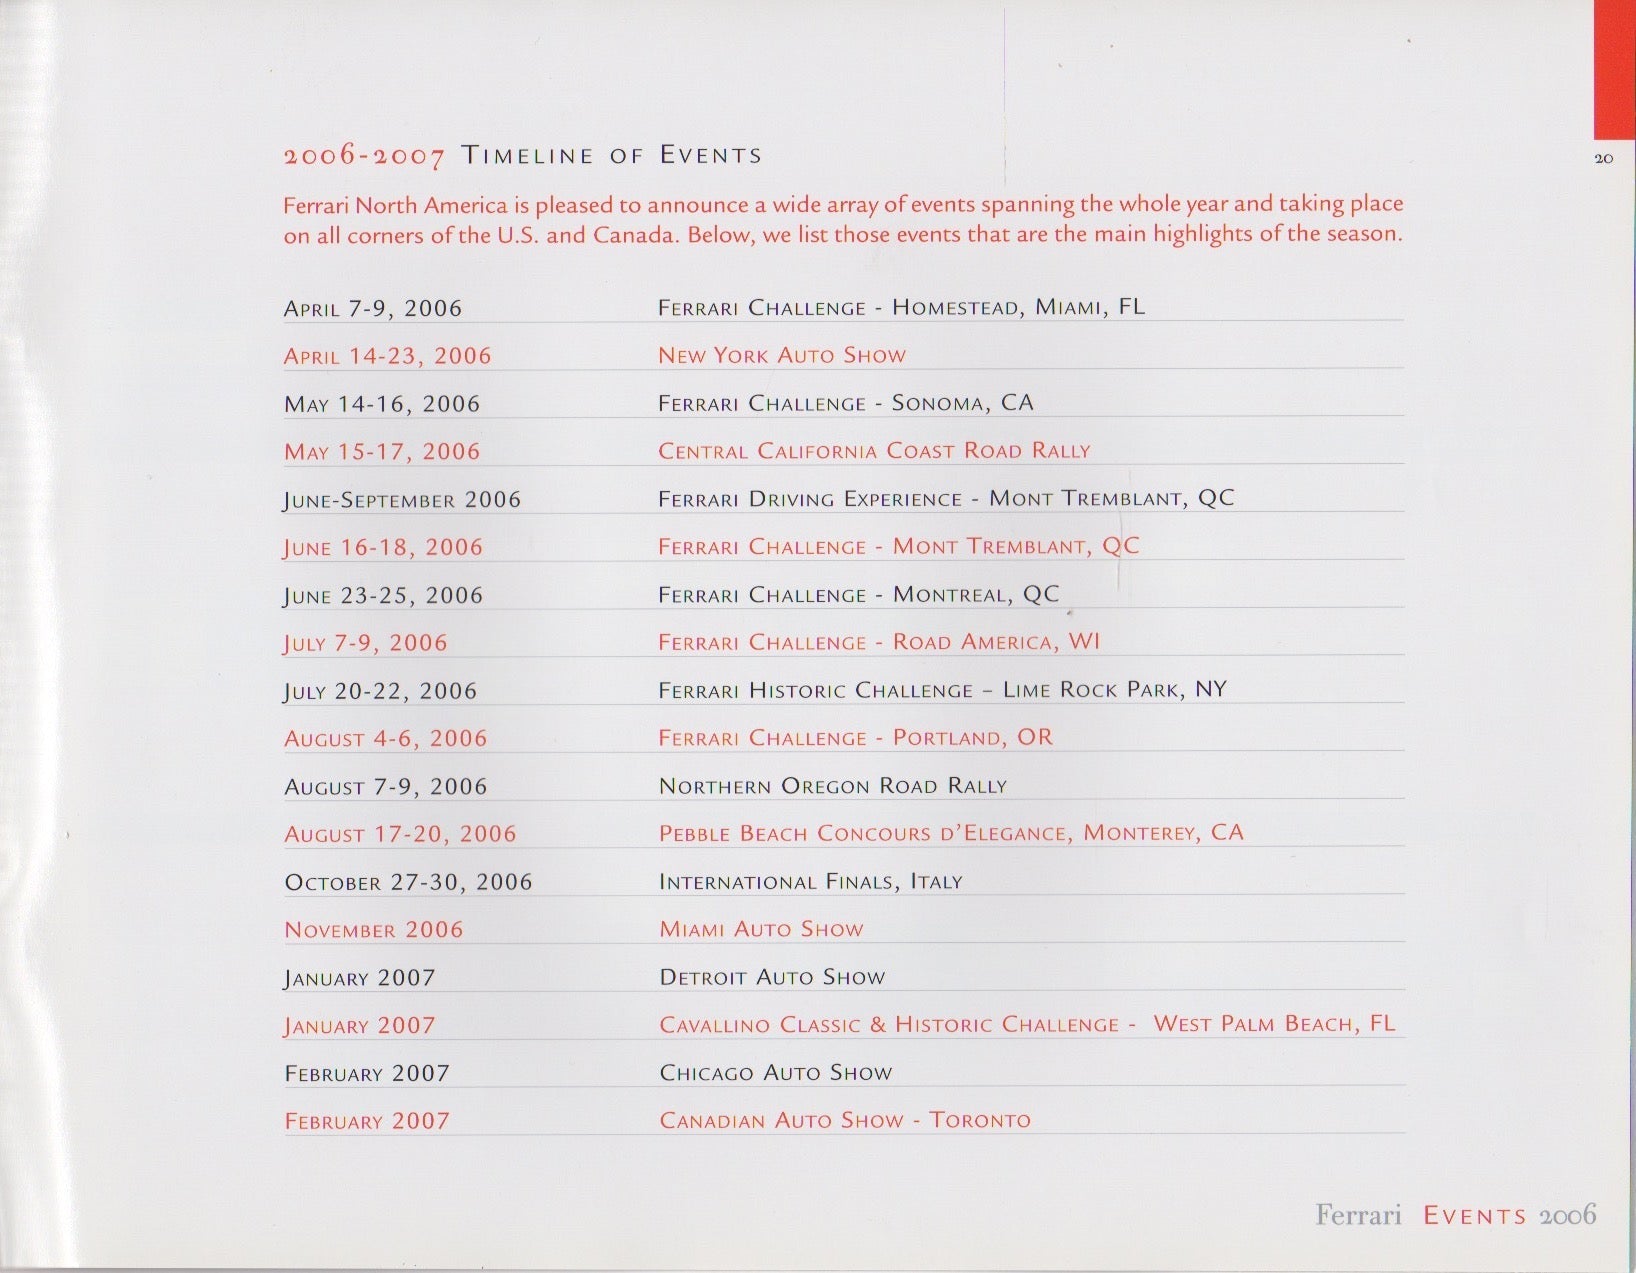 20
2006-2007 Timeline of Events
Ferrari North America is pleased to announce a wide array of events spanning the whole year and taking place
on all corners of the U.S. and Canada. Below, we list those events that are the main highlights of the season.
April 7-9, 2006 Ferrari Challenge - Homestead, Miami, FL
April 14-23, 2006 New York Auto Show
May 14-16, 2006 Ferrari Challenge - Sonoma, CA
May 15-17, 2006 Central California Coast Road Rally
June-September 2006 Ferrari Driving Experience - Mont Tremblant, QC
June 16-18, 2006 Ferrari Challenge - Mont Tremblant, QC
June 23-25, 2006 Ferrari Challenge - Montreal, QC
July 7-9, 2006 Ferrari Challenge - Road America, WI
July 20-22, 2006 Ferrari Historic Challenge – Lime Rock Park, NY
August 4-6, 2006 Ferrari Challenge - Portland, OR
August 7-9, 2006 Northern Oregon Road Rally
August 17-20, 2006 Pebble Beach Concours d'Elegance, Monterey, CA
October 27-30, 2006 International Finals, Italy
November 2006 Miami Auto Show
January 2007 Detroit Auto Show
January 2007 Cavallino Classic & Historic Challenge - West Palm Beach, FL
February 2007 Chicago Auto Show
February 2007 Canadian Auto Show - Toronto
Ferrari Events 2006